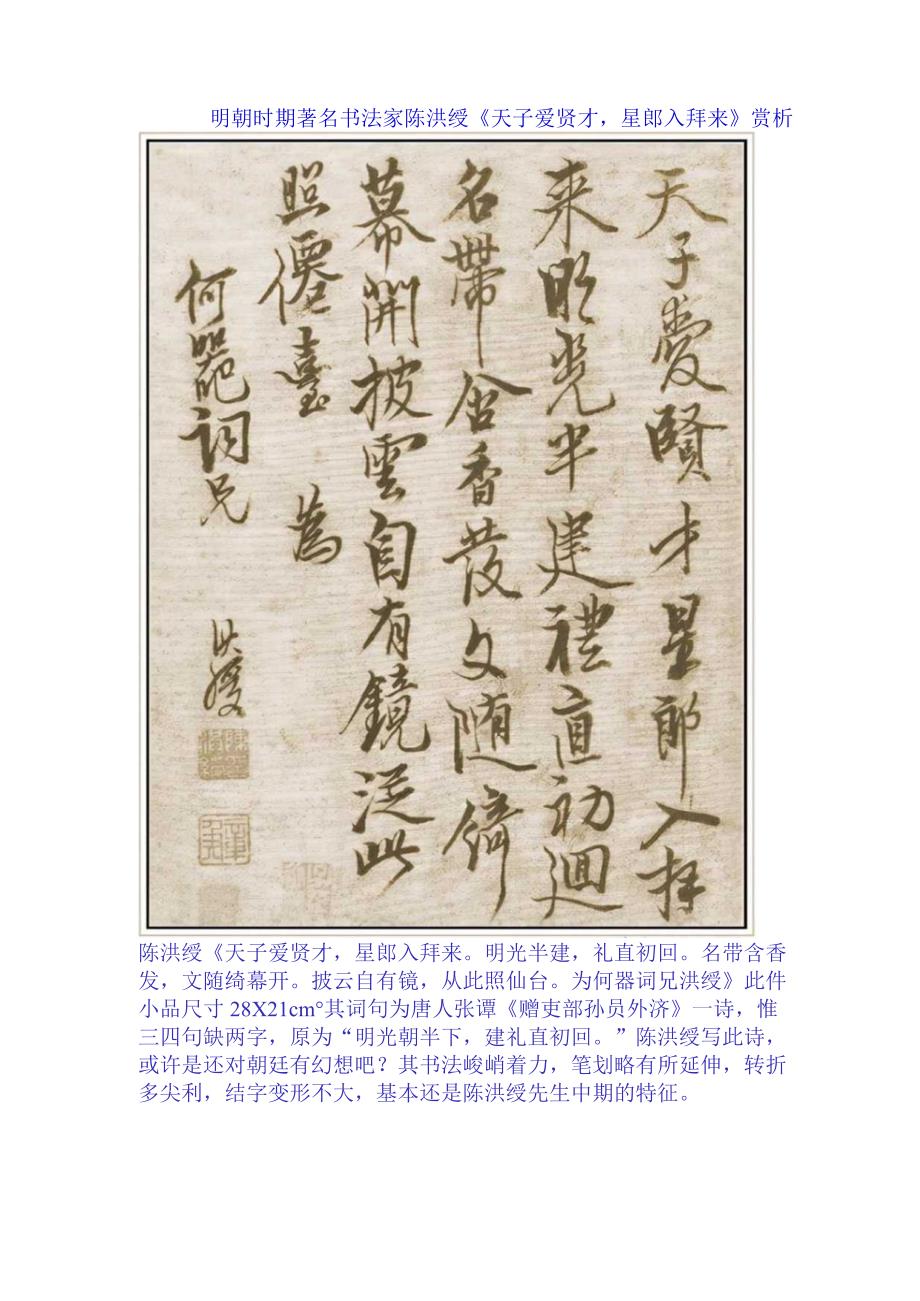 明朝时期著名书法家陈洪绶《天子爱贤才，星郎入拜来》赏析
天子愛賢才星郎入拜
来明光半建禮直初迴
名帶含香發文随綺
幕開披雲自有鏡従此
照僊臺 為
何器词兄
洪綬
陈洪绶《天子爱贤才，星郎入拜来。明光半建，礼直初回。名带含香
发，文随绮幕开。披云自有镜，从此照仙台。为何器词兄洪绶》此件
小品尺寸28X21cm°其词句为唐人张谭《赠吏部孙员外济》一诗，惟
三四句缺两字，原为“明光朝半下，建礼直初回。”陈洪绶写此诗，
或许是还对朝廷有幻想吧？其书法峻峭着力，笔划略有所延伸，转折
多尖利，结字变形不大，基本还是陈洪绶先生中期的特征。